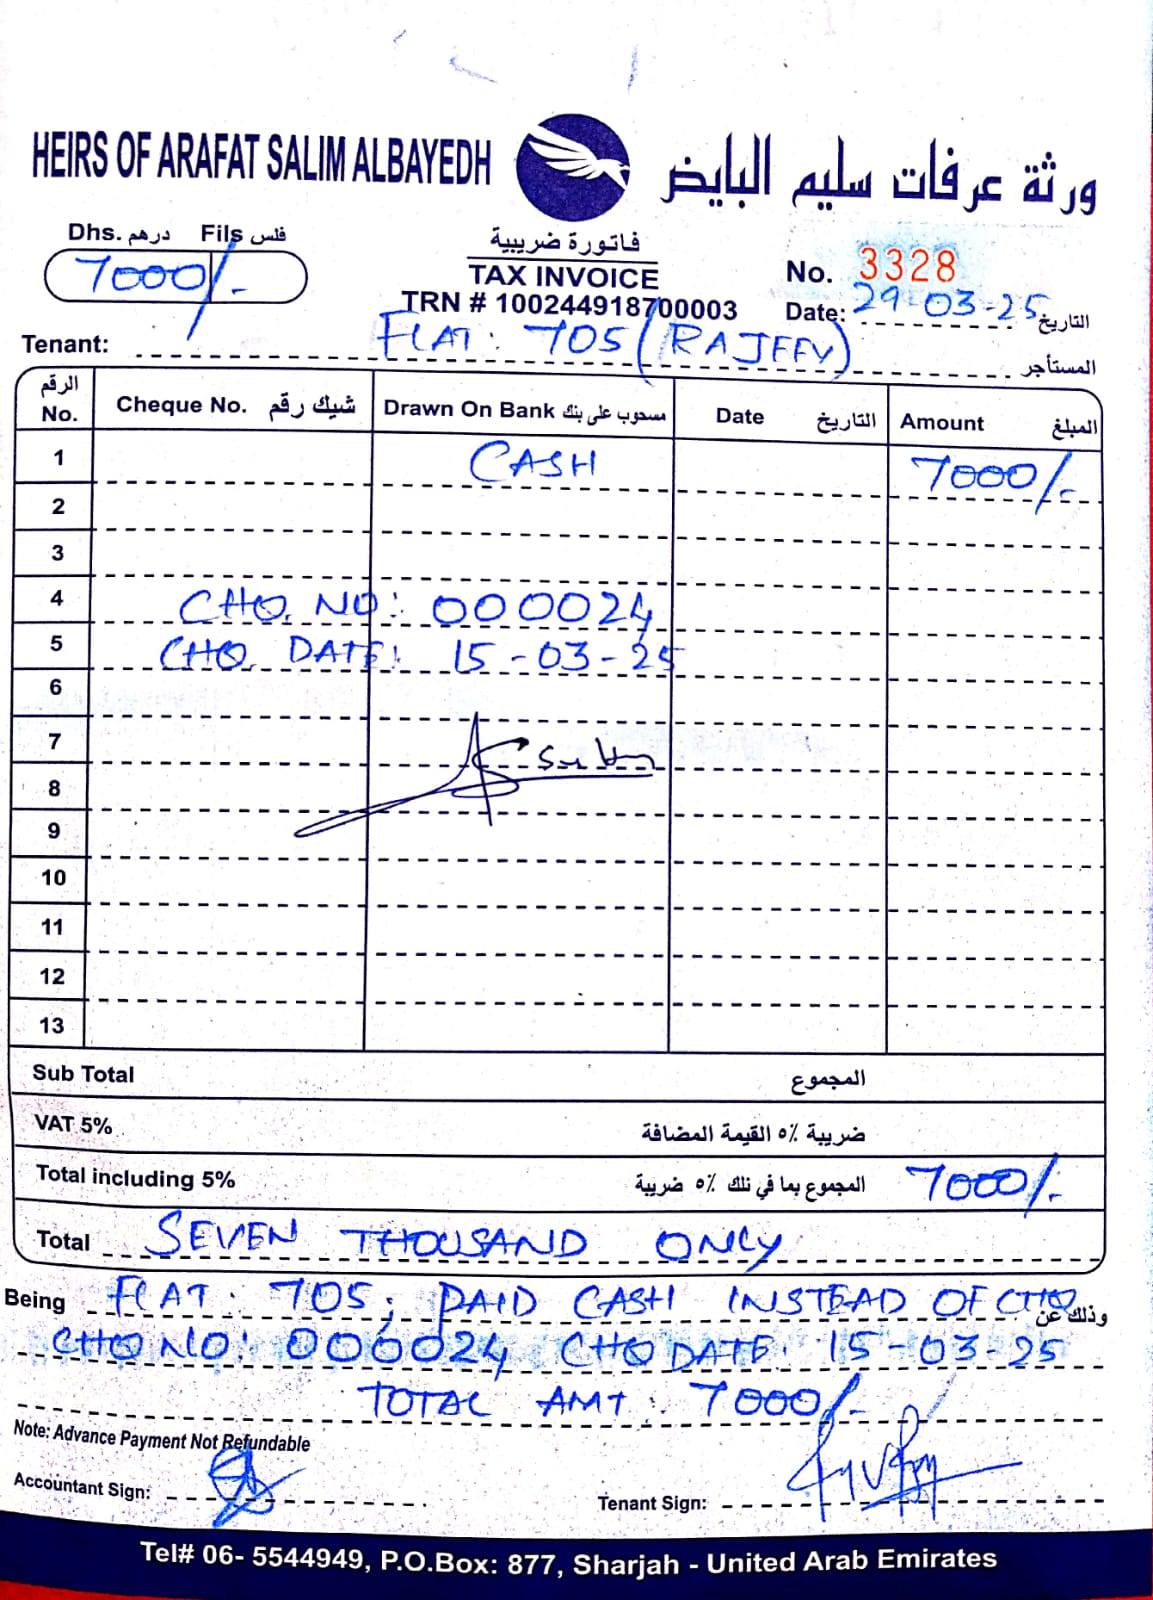 HEIRS OF ARAFAT SALIM ALBAYEDH ورثة عرفات سليم البايض
Dhs. درهم Fils فلس
7000/-
فاتورة ضريبية
TAX INVOICE
TRN # 100244918700003
No. 3328
Date: 29-03-25 التاريخ
Tenant: FLAT: 705 (RAJEEV) المستأجر
الرقم No. Cheque No. شيك رقم Drawn On Bank مسحوب على بنك Date التاريخ Amount المبلغ
1 CASH 7000/-
2
3
4 CHQ. NO: 000024
5 CHQ. DATE: 15-03-25
6
7
8
9
10
11
12
13
Sub Total المجموع
VAT 5% ضريبة ٥٪ القيمة المضافة
Total including 5% المجموع بما في ذلك ٥٪ ضريبة 7000/-
Total SEVEN THOUSAND ONLY
Being FLAT: 705; PAID CASH INSTEAD OF CHQ وذلك عن
CHQ NO: 000024 CHQ DATE: 15-03-25
TOTAL AMT: 7000/-
Note: Advance Payment Not Refundable
Accountant Sign:
Tenant Sign:
Tel# 06- 5544949, P.O.Box: 877, Sharjah - United Arab Emirates